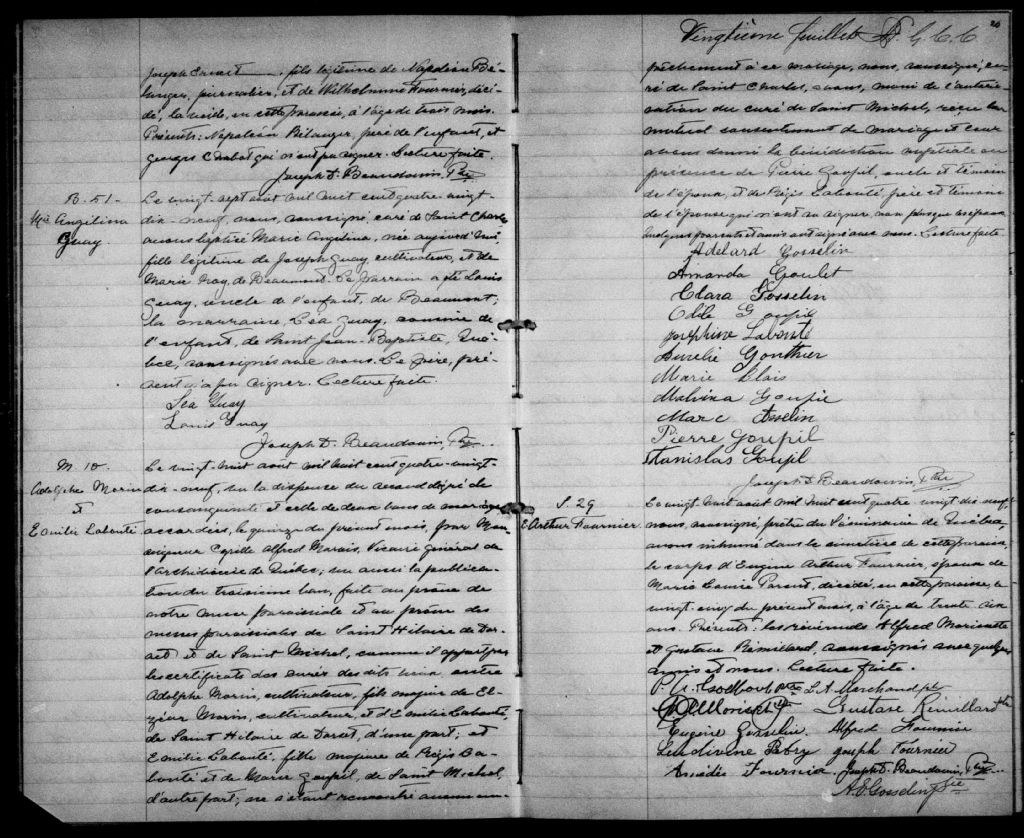 Joseph Ernest, fils légitime de Napoléon Bé-
langer, journalier, et de Wilhelmine Fournier, décé-
dé, la veille, en cette paroisse, à l'âge de trois mois.
Présents: Napoléon Bélanger, père de l'enfant, et
Georges Chabot qui n'ont pu signer. Lecture faite.
Joseph D. Beaudouin, Ptre
B. 51-
Mie Angélina
Guay
Le vingt sept août mil huit cent quatre-vingt-
dix-neuf, nous, soussigné, curé de Saint Charles
avons baptisé Marie Angélina, née aujourd'hui,
fille légitime de Joseph Guay, cultivateur, et de
Marie Roy, de Beaumont. Le parrain a été Louis
Guay, oncle de l'enfant, de Beaumont;
la marraine, Léa Guay, cousine de
l'enfant, de Saint Jean-Baptiste, Qué-
bec, soussignés avec nous. Le père, pré-
sent n'a pu signer. Lecture faite.
Léa Guay
Louis Guay
Joseph D. Beaudouin, Ptre
M. 10.
Adolphe Morin
et
Emilie Labonté
Le vingt-huit août mil huit cent quatre-vingt-
dix-neuf, vu la dispense du second degré de
consanguinité et celle de deux bans de mariage
accordées, le quinze du présent mois, par Mon-
seigneur Cyrille Alfred Marois, Vicaire général de
l'Archidiocèse de Québec; vu aussi la publica-
tion du troisième ban, faite au prône de
notre messe paroissiale et au prône des
messes paroissiales de Saint Hilaire de Dor-
set et de Saint Michel, comme il appert par
les certificats des curés des dits lieux, entre
Adolphe Morin, cultivateur, fils majeur de El-
zéar Morin, cultivateur, et d'Emilie Labonté,
de Saint Hilaire de Dorset, d'une part; et
Emilie Labonté, fille majeure de Régis La-
bonté et de Marie Goupil, de Saint Michel,
d'autre part; ne s'étant rencontré aucun em-
Vingtième feuillet G. C. C
20
pêchement à ce mariage, nous, soussigné, cu-
ré de Saint Charles, avons, muni de l'autori-
sation du curé de Saint Michel, reçu leur
mutuel consentement de mariage et leur
avons donné la bénédiction nuptiale en
présence de Pierre Goupil, oncle et témoin
de l'époux, et de Régis Labonté, père et témoin
de l'épouse qui n'ont su signer, non plus que les époux.
Quelques parents et amis ont signé avec nous. Lecture faite
Adélard Gosselin
Amanda Goulet
Clara Gosselin
Odile Goupil
Josephine Labonté
Aurélie Gonthier
Marie Blais
Malvina Goupil
Marc Asselin
Pierre Goupil
Stanislas Goupil
Joseph D. Beaudouin, Ptre
S. 29
E. Arthur Fournier
Le vingt huit août mil huit cent quatre-vingt dix neuf,
nous, soussigné, prêtre du Séminaire de Québec,
avons inhumé dans le cimetière de cette paroisse,
le corps d'Eugène Arthur Fournier, époux de
Marie Louise Parent, décédé, en cette paroisse, le
vingt-cinq du présent mois, à l'âge de trente six
ans. Présents: les révérends Alfred Morissette
et Gustave Rémillard, soussignés avec quelques
amis et nous. Lecture faite.
ptre L. A. Marchand ptre
Gustave Rémillard ptre
Eugène Gosselin. Alfred Fournier
Ludivine Patry Joseph Fournier
Amédée Fournier. Joseph D. Beaudouin, Ptre
A. E. Gosselin Ptre